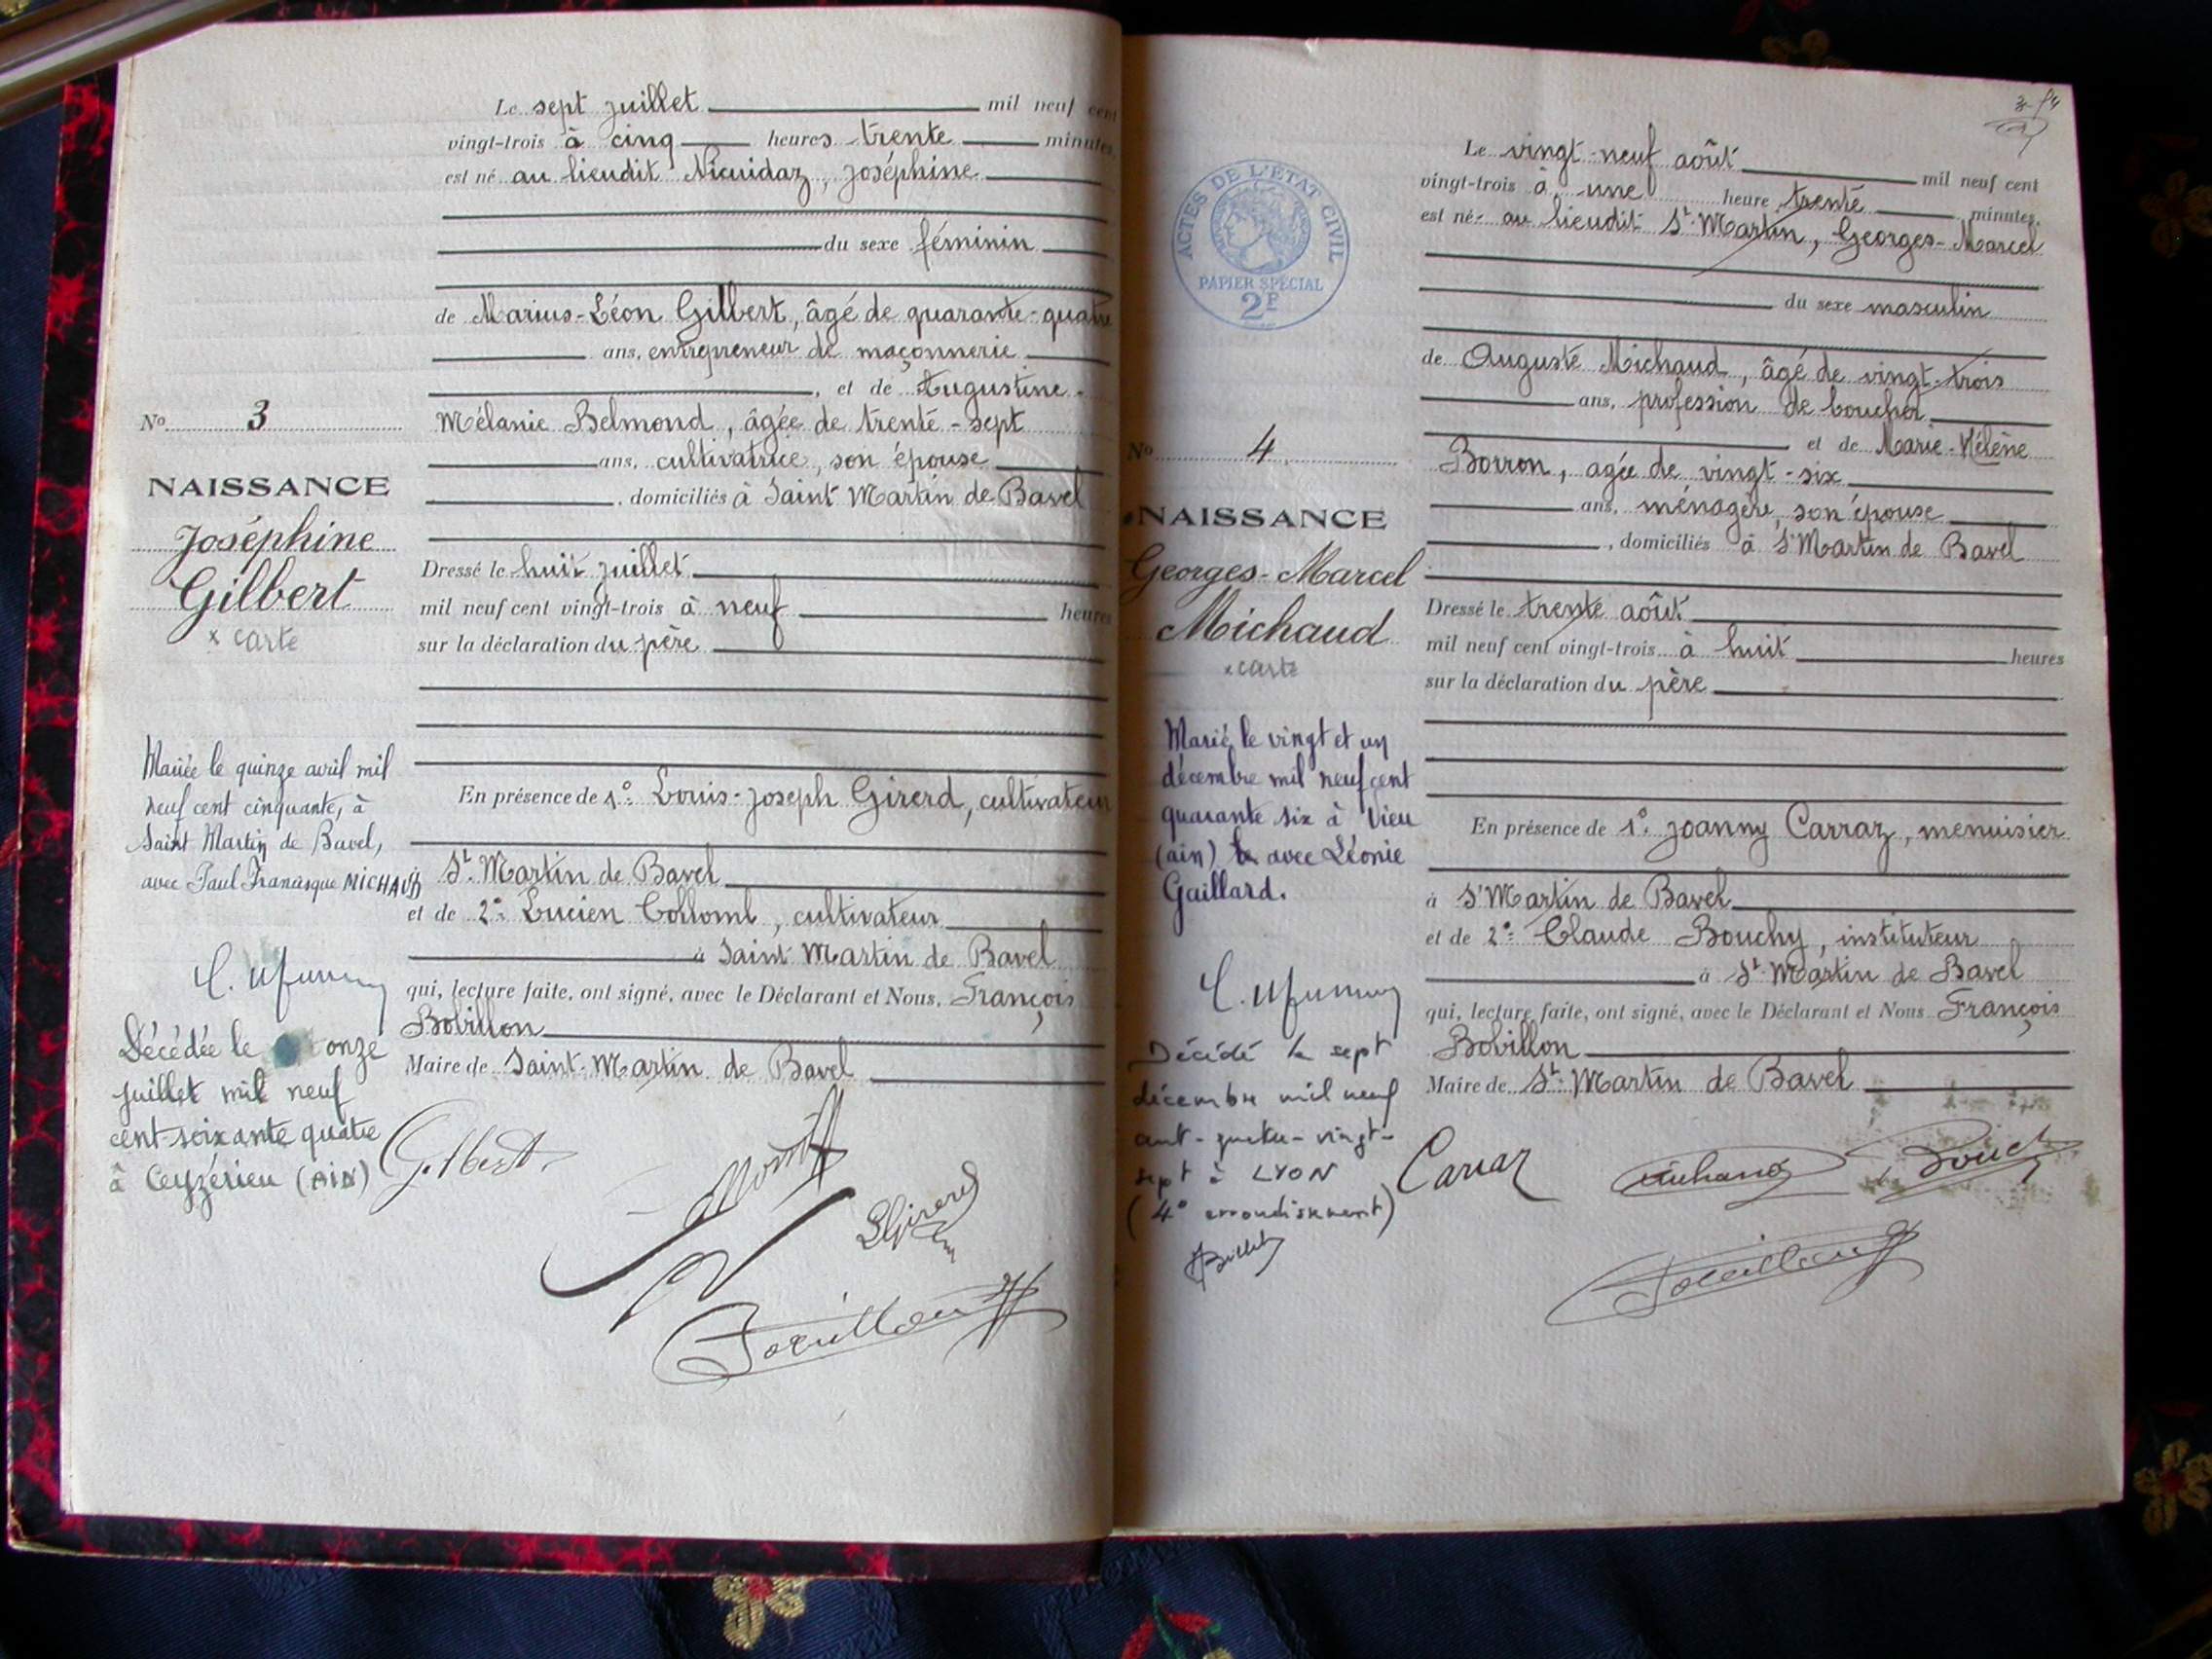 Le sept juillet mil neuf cent
vingt-trois à cinq heures trente minutes,
est né au lieudit Nicuidaz, Joséphine
du sexe féminin
de Marius-Léon Gilbert, âgé de quarante-quatre
ans, entrepreneur de maçonnerie
, et de Augustine-
No 3
Mélanie Belmond, âgée de trente-sept
ans, cultivatrice, son épouse
, domiciliés à Saint Martin de Bavel
NAISSANCE
Joséphine
Gilbert
x carte
Dressé le huit juillet
mil neuf cent vingt-trois à neuf heures
sur la déclaration du père
Mariée le quinze avril mil
neuf cent cinquante, à
Saint Martin de Bavel,
avec Paul Francisque MICHAUD
En présence de 1º: Louis-Joseph Girerd, cultivateur
St. Martin de Bavel
et de 2º: Lucien Collomb, cultivateur
à Saint Martin de Bavel
qui, lecture faite, ont signé, avec le Déclarant et Nous, François
Bobillon
Maire de Saint-Martin de Bavel
Décédée le onze
juillet mil neuf
cent-soixante quatre
à Ceyzérieu (AIN)
Gilbert
LGirerd
Bobillon
ACTES DE L'ETAT CIVIL
PAPIER SPÉCIAL
2F
Le vingt-neuf août mil neuf cent
vingt-trois à une heure trente minutes,
est né au lieudit St. Martin, Georges-Marcel
du sexe masculin
de Auguste Michaud, âgé de vingt-trois
ans, profession de boucher
et de Marie-Hélène
No 4
Borron, agée de vingt-six
ans, ménagère, son épouse
, domiciliés à St Martin de Bavel
NAISSANCE
Georges-Marcel
Michaud
x carte
Dressé le trente août
mil neuf cent vingt-trois à huit heures
sur la déclaration du père
Marié le vingt et un
décembre mil neuf cent
quarante six à Vieu
(ain) avec Léonie
Gaillard.
En présence de 1º: Joanny Carraz, menuisier
à St Martin de Bavel
et de 2º: Claude Bouchy, instituteur
à St. Martin de Bavel
qui, lecture faite, ont signé, avec le Déclarant et Nous François
Bobillon
Maire de St. Martin de Bavel
Décédé le sept
décembre mil neuf
cent-quatre-vingt-
sept à LYON
(4º arrondissement)
Carraz
Michaud
Bouchy
Bobillon